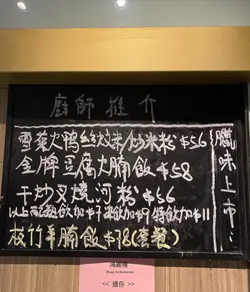 廚師推介
雪菜火鴨絲炆米/炒米粉 $56
金牌豆腐火腩飯 $58
干炒叉燒河粉 $56
以上配熱飲加
枝竹羊腩飯 $78(套餐)
臘味上市
<< 通告 >>